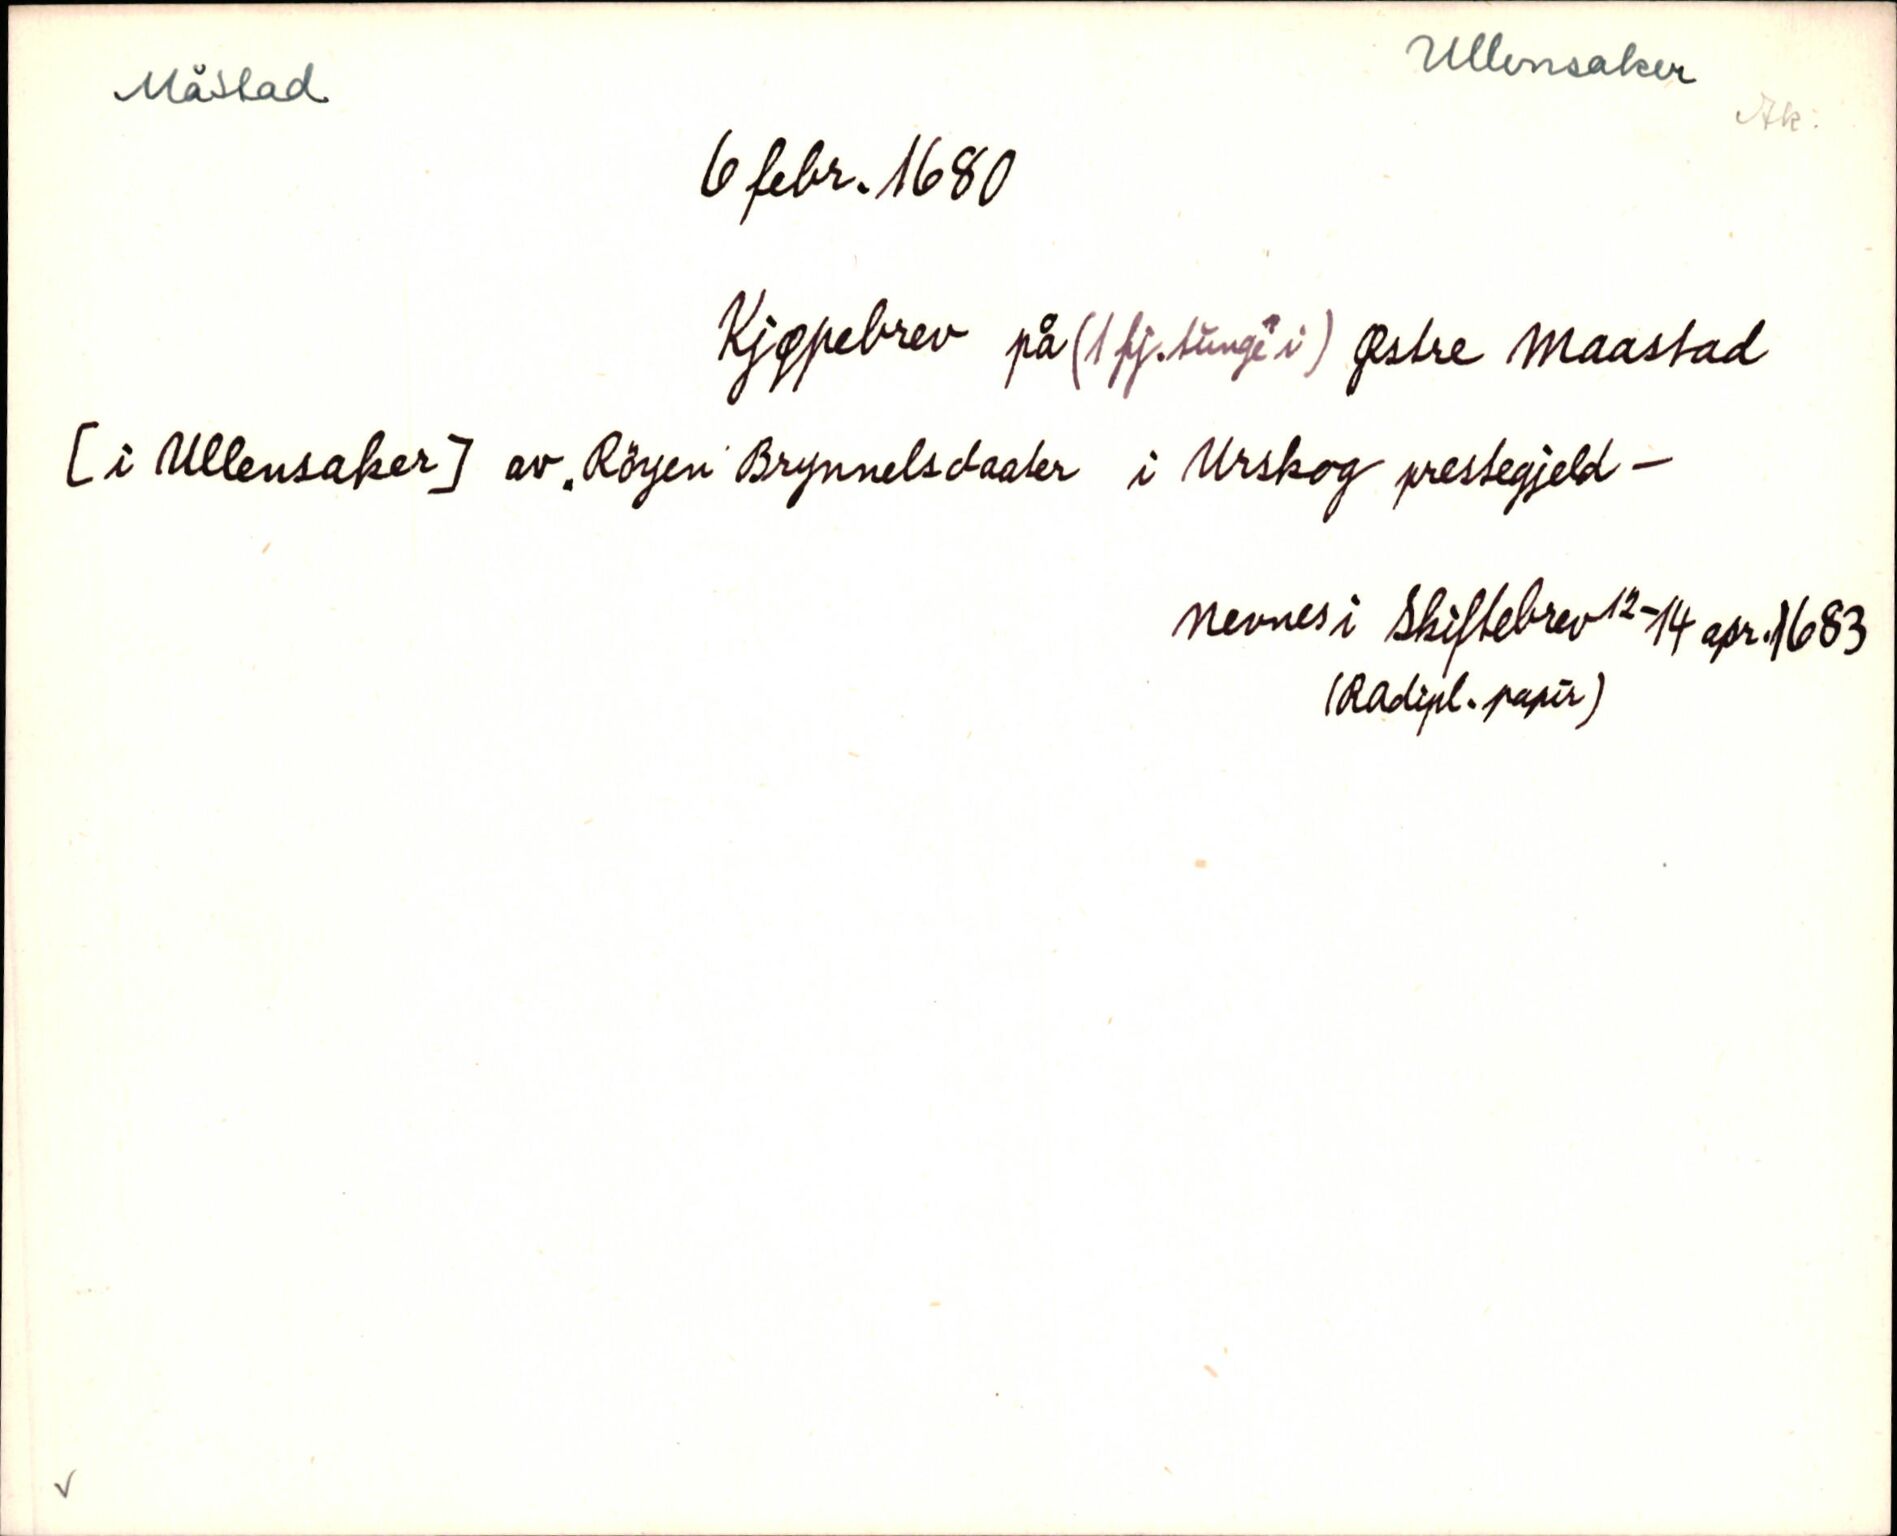 Måstad
Ullensaker
Ak.
6 febr. 1680
Kjøpebrev på (1 fj. tunge i) Østre Maastad
[i Ullensaker] av "Röyen Brynnelsdaater i Urskog prestegjeld —
nevnes i Skiftebrev 12-14 apr. 1683
(RAdipl. papir)